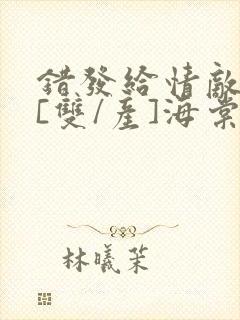 錯發給情敵
[雙/產]海棠
林曦茉